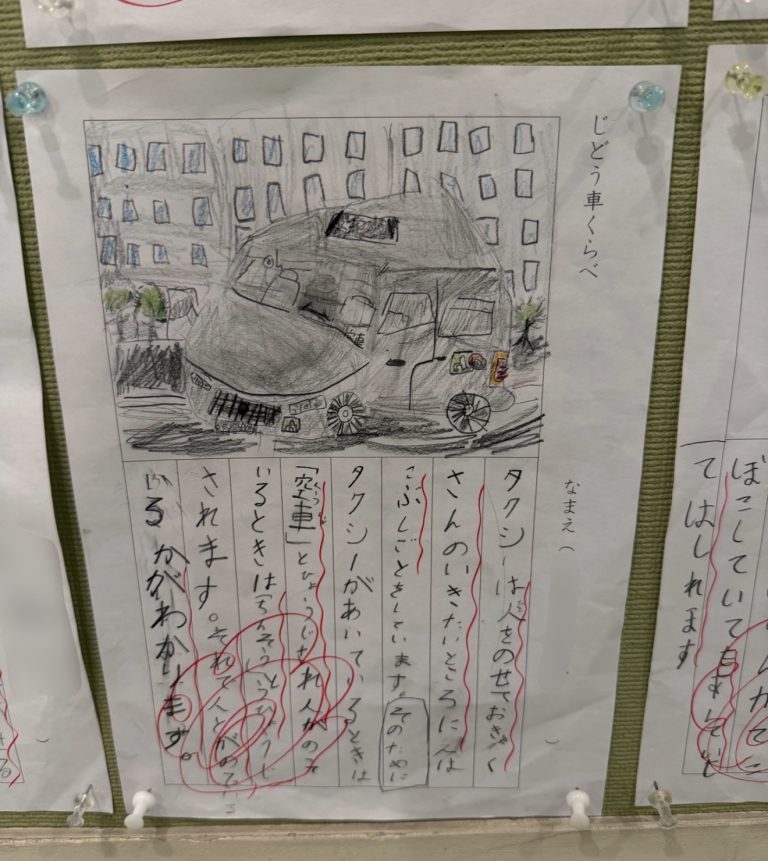 じどう車くらべ
なまえ(
)
タクシーは人をのせておきゃく
さんのいきたいところにんは
こぶしごとをしています。そのために
タクシーがあいているときは
「空車」とひょうじされ人がのって
いるときは
されます。それで人とがのって
いるかがわかります。
ぼこしていても
てはしれます